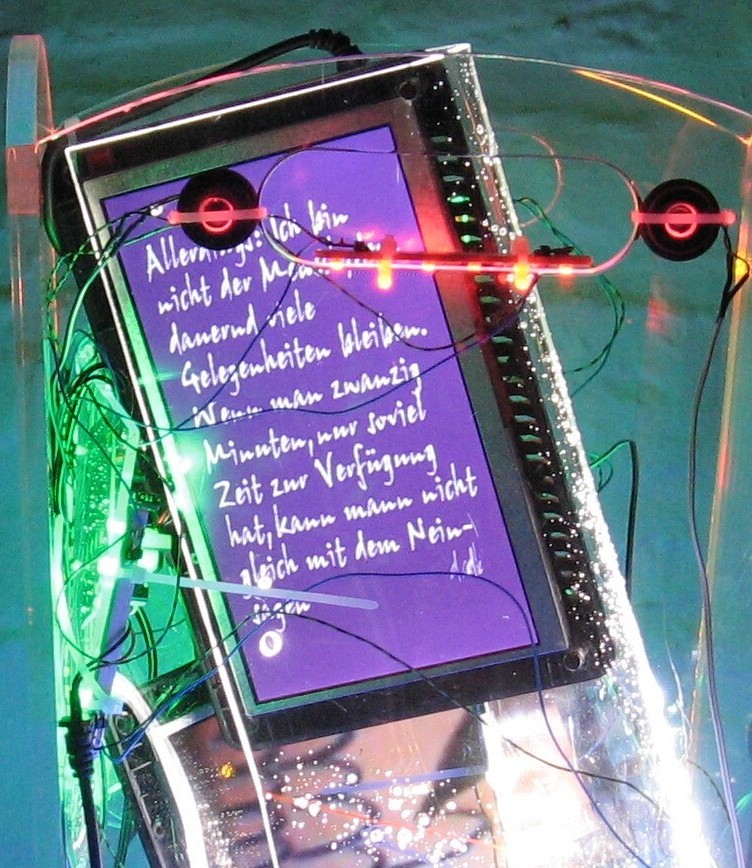 Allerdings! Ich bin
nicht der
dauernd viele
Gelegenheiten bleiben.
Wenn man zwanzig
Minuten, nur soviel
Zeit zur Verfügung
hat, kann mann nicht
gleich mit dem Nein-
sagen